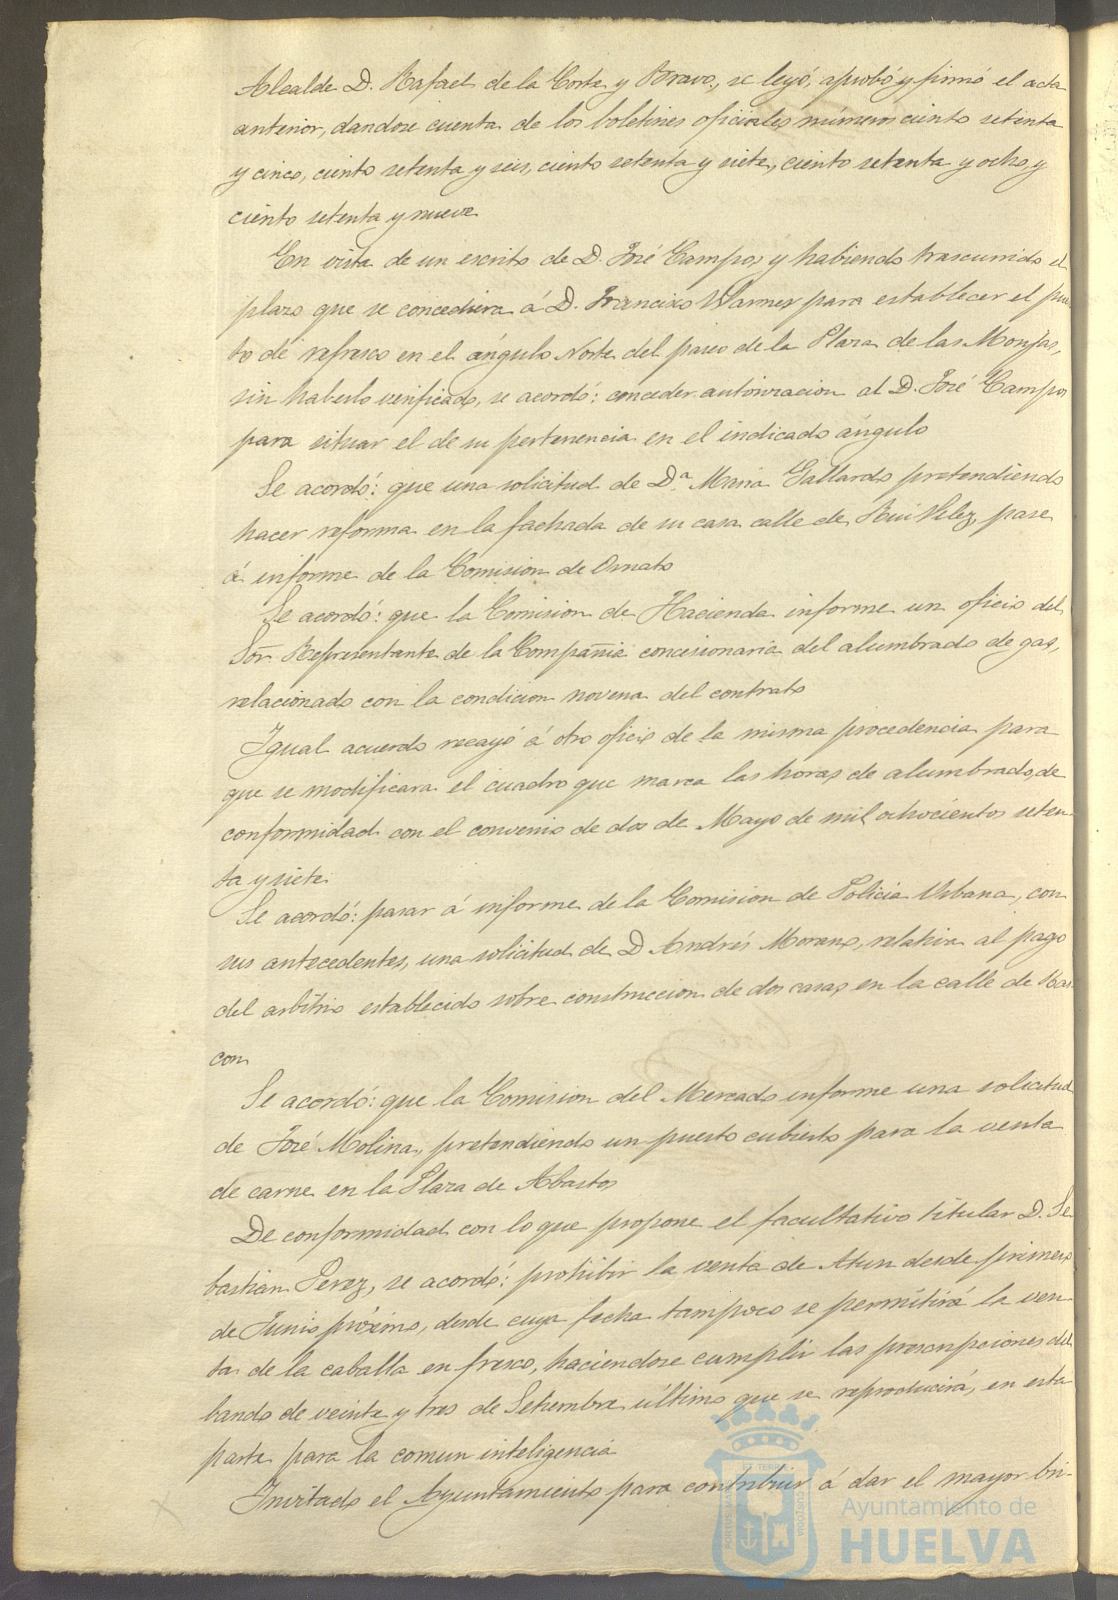 Alcalde D. Rafael de la Corte y Bravo, se leyó, aprobó y firmó el acta
anterior, dandose cuenta de los boletines oficiales números ciento setenta
y cinco, ciento setenta y seis, ciento setenta y siete, ciento setenta y ocho y
ciento setenta y nueve
En vista de un escrito de D. José Campos y habiendo trascurrido el
plazo que se concediera á D. Francisco Warner para establecer el pues
to de refresco en el ángulo Norte del paseo de la Plaza de las Monjas,
sin haberlo verificado, se acordó: conceder autorizacion al D. José Campos
para situar el de su pertenencia en el indicado ángulo
Se acordó: que una solicitud de D.ª Maria Gallardo pretendiendo
hacer reforma en la fachada de su casa calle de Rui Velez, pase
á informe de la Comision de Ornato
Se acordó: que la Comision de Hacienda informe un oficio del
Sor. Representante de la Compañia concesionaria del alumbrado de gas,
relacionado con la condicion novena del contrato
Igual acuerdo recayó á otro oficio de la misma procedencia para
que se modificara el cuadro que marca las horas de alumbrado, de
conformidad con el convenio de dos de Mayo de mil ochocientos seten
ta y siete
Se acordó: pasar á informe de la Comision de Policia Urbana, con
sus antecedentes, una solicitud de D Andrés Moreno, relativa al pago
del arbitrio establecido sobre construccion de dos casas en la calle de Ras
con
Se acordó: que la Comision del Mercado informe una solicitud
de José Molina, pretendiendo un puesto cubierto para la venta
de carne en la Plaza de Abastos
De conformidad con lo que propone el facultativo titular D. Se
bastian Perez, se acordó: prohibir la venta de Atun desde primero
de Junio próximo, desde cuya fecha tampoco se permitirá la ven
ta de la caballa en fresco, haciendose cumplir las prescripciones del
bando de veinte y tres de Setiembre último que se reproducirá, en esta
parte para la comun inteligencia
Invitado el Ayuntamiento para contribuir á dar el mayor bri-
Ayuntamiento de
HUELVA